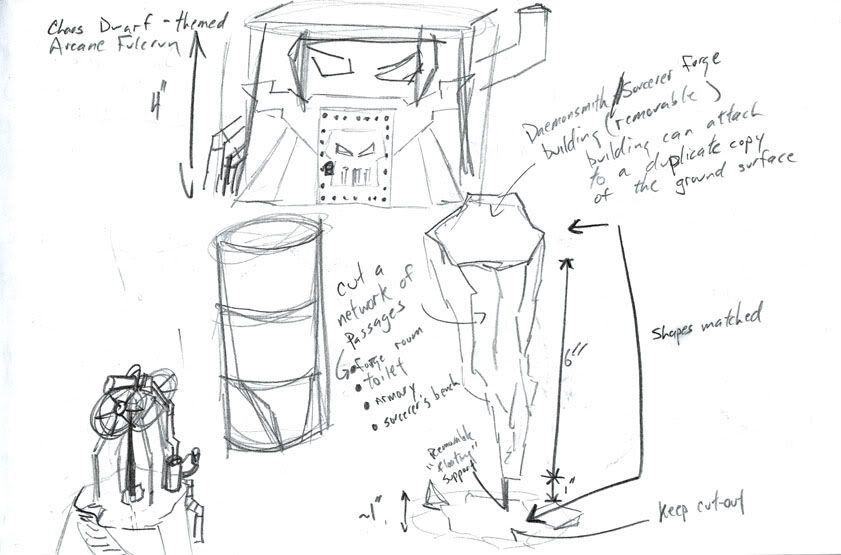 Chaos Dwarf - themed
Arcane Fulcrum
4"
Daemonsmith/Sorcerer Forge
building (removable)
building can attach
to a duplicate copy
of the ground surface
cut a
network of
passages
forge room
• toilet
• armory
• sorcerer's bench
6"
Shapes matched
"Removable
floating"
support
1"
~1"
Keep cut-out